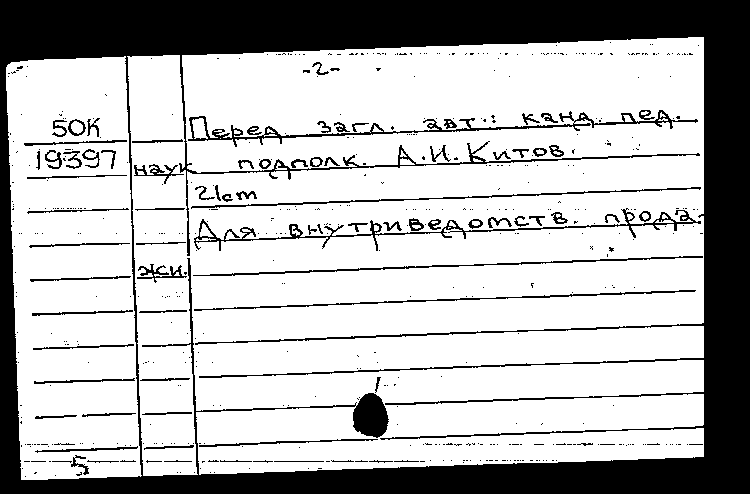 -2-
50К Перед загл. авт.: канд. пед.
19397 наук подполк. А.И.Китов.
21cm
Для внутриведомств. прода-
жи.
5